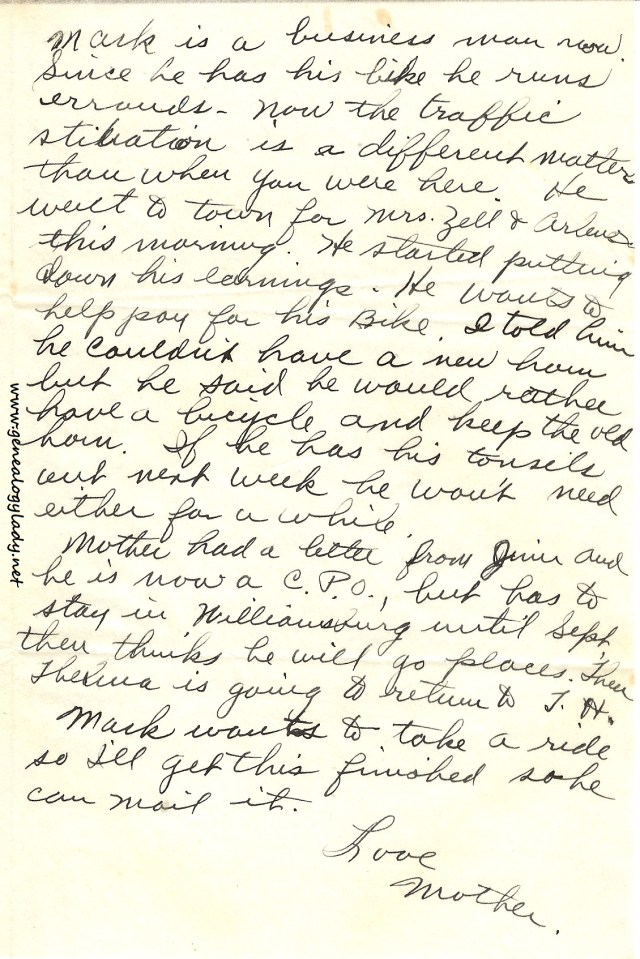 Mark is a business man now.
Since he has his bike he runs
errands - Now the traffic
stituation is a different matters
than when you were here. He
went to town for Mrs. Zell & Arlene
this morning. He started putting
down his earnings. He wants to
help pay for his Bike. I told him
he couldn't have a new horn
but he said he would rather
have a bicycle and keep the old
horn. If he has his tonsils
out next week he won't need
either for a while.
Mother had a letter from Jim and
he is now a C.P.O., but has to
stay in Williamsburg until Sept,
then thinks he will go places. Then
Thelma is going to return to T. H.
Mark wants to take a ride
so I'll get this finished so he
can mail it.
Love
Mother.
www.genealogylady.net